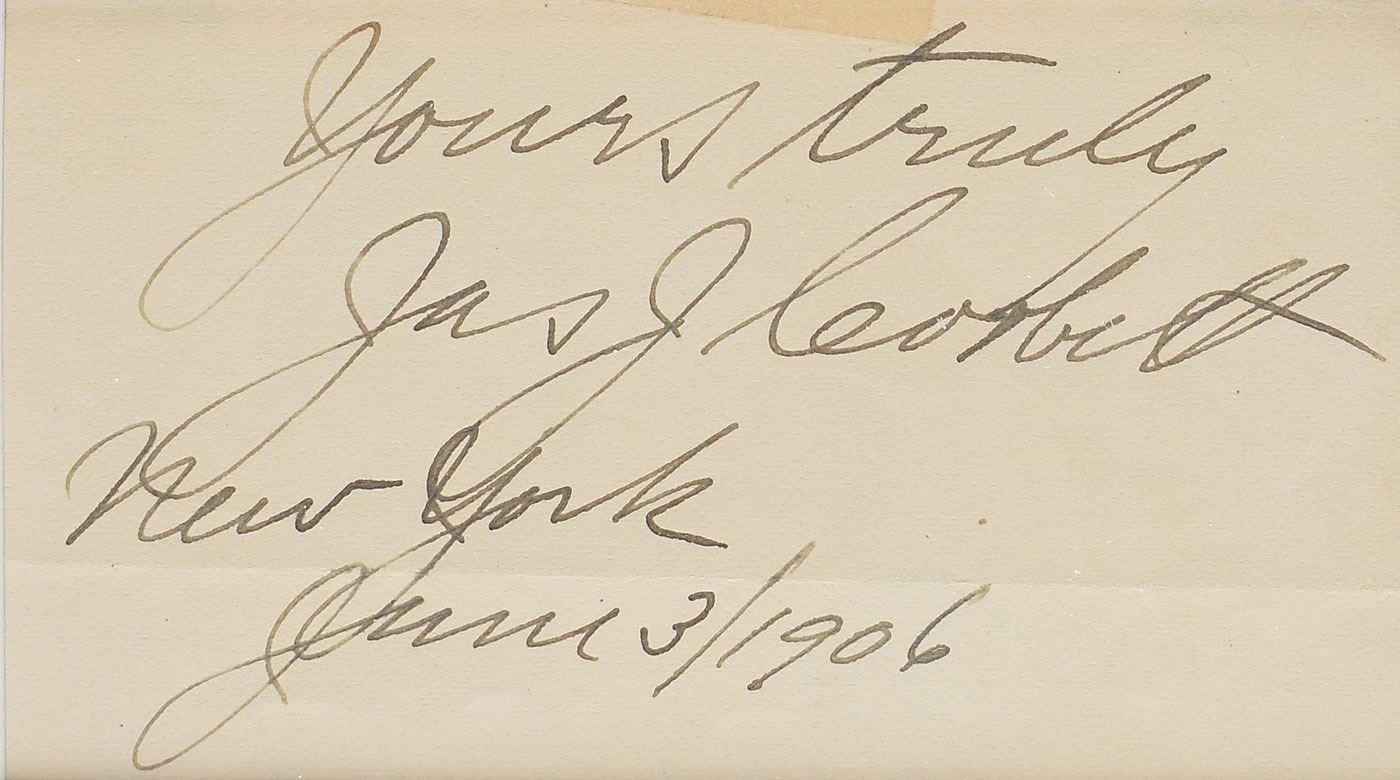 Yours truly
Jas J Corbett
New York
June 3/1906